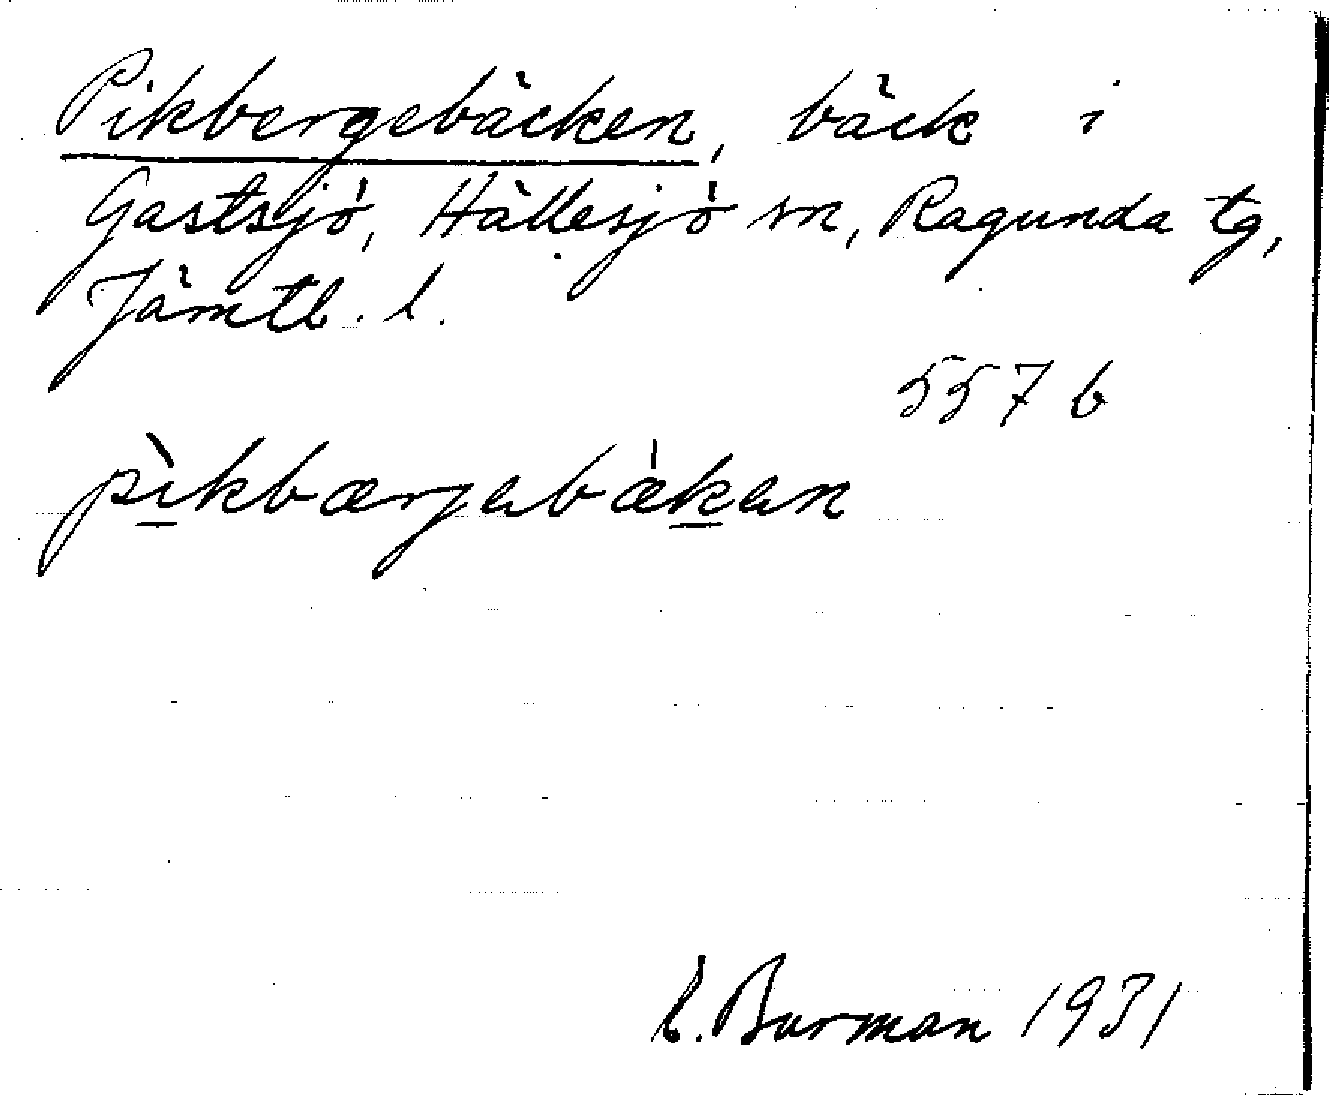 Pikbergebäcken, bäck i
Gastsjö, Hällesjö sn, Ragunda tg,
Jämtl. l.
557 b
pìkbærgebæken
E. Burman 1931